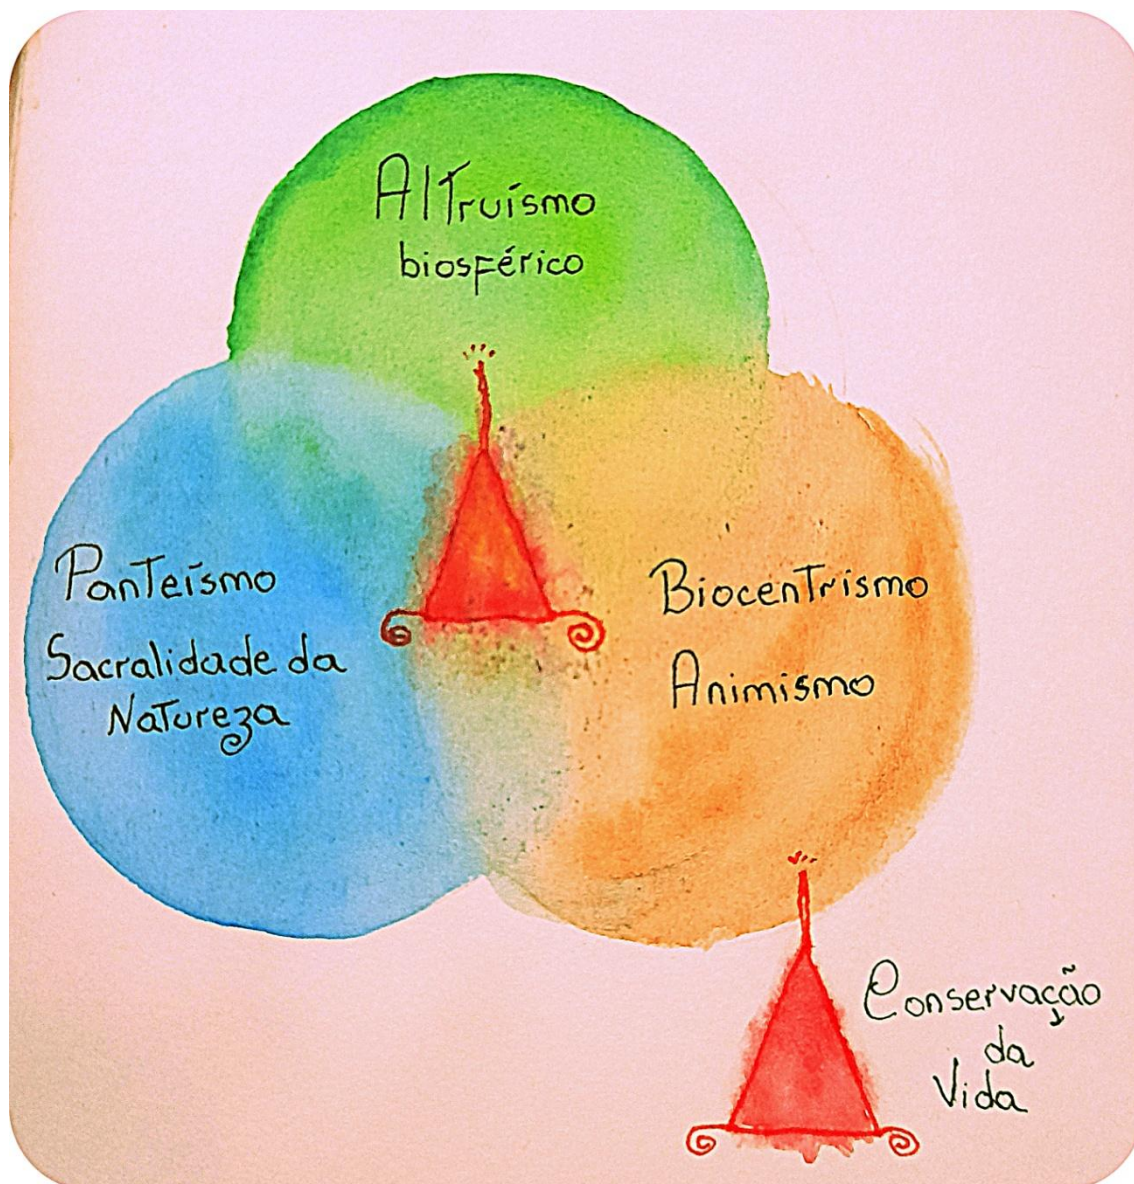 Altruísmo
biosférico
Panteísmo
Sacralidade da
Natureza
Biocentrismo
Animismo
Conservação
da
Vida